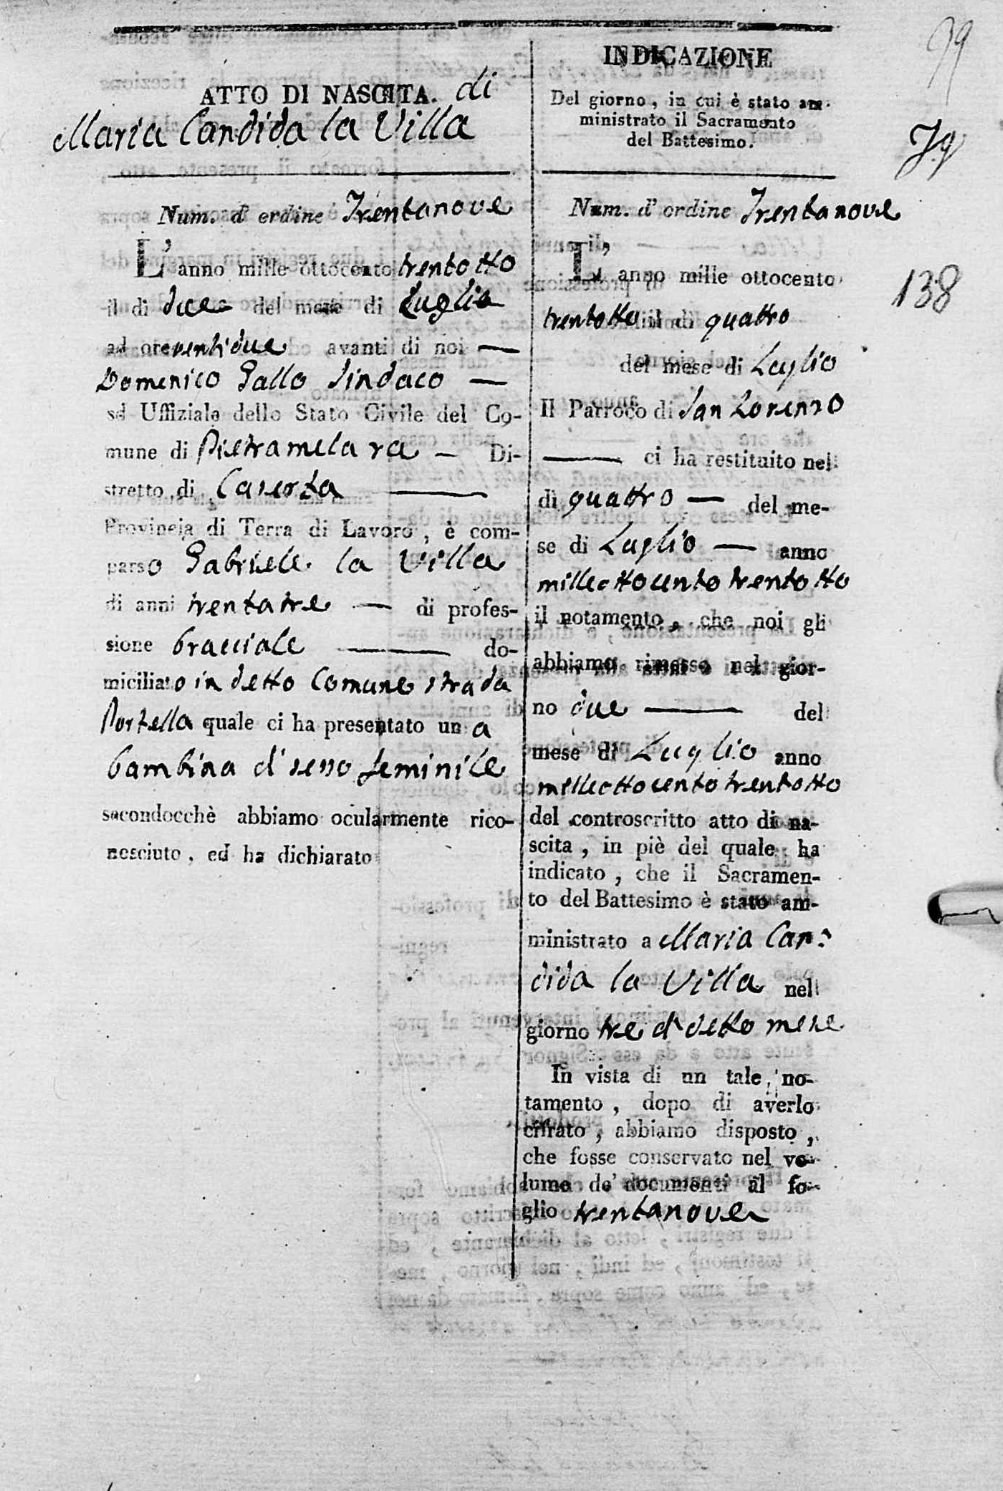 ATTO DI NASCITA. di
Maria Candida la Villa
Num. d' ordine Trentanove
L' anno mille ottocento trentotto
il di due del mese di Luglio
ad ore ventidue avanti di noi —
Domenico Gallo Sindaco —
ed Uffiziale dello Stato Civile del Co-
mune di Pietramelara — Di-
stretto di Caserta —
Provincia di Terra di Lavoro, è com-
parso Gabriele la Villa
di anni trentatre — di profes-
sione bracciale — do-
miciliato in detto Comune strada
Portella quale ci ha presentato una
bambina di sesso feminile
secondocchè abbiamo ocularmente rico-
nosciuto, ed ha dichiarato
INDICAZIONE
Del giorno, in cui è stato am-
ministrato il Sacramento
del Battesimo.
Num. d' ordine Trentanove
L' anno mille ottocento
trentotto il di quattro
del mese di Luglio
Il Parroco di San Lorenzo
— ci ha restituito nel
di quattro — del me-
se di Luglio — anno
milleottocento trentotto
il notamento, che noi gli
abbiamo rimesso nel gior-
no due — del
mese di Luglio anno
milleottocento trentotto
del controscritto atto di na-
scita, in piè del quale ha
indicato, che il Sacramen-
to del Battesimo è stato am-
ministrato a Maria Can-
dida la Villa nel
giorno tre di detto mese
In vista di un tale no-
tamento, dopo di averlo
cifrato, abbiamo disposto,
che fosse conservato nel vo-
lume de' documenti al fo-
glio trentanove
39
138